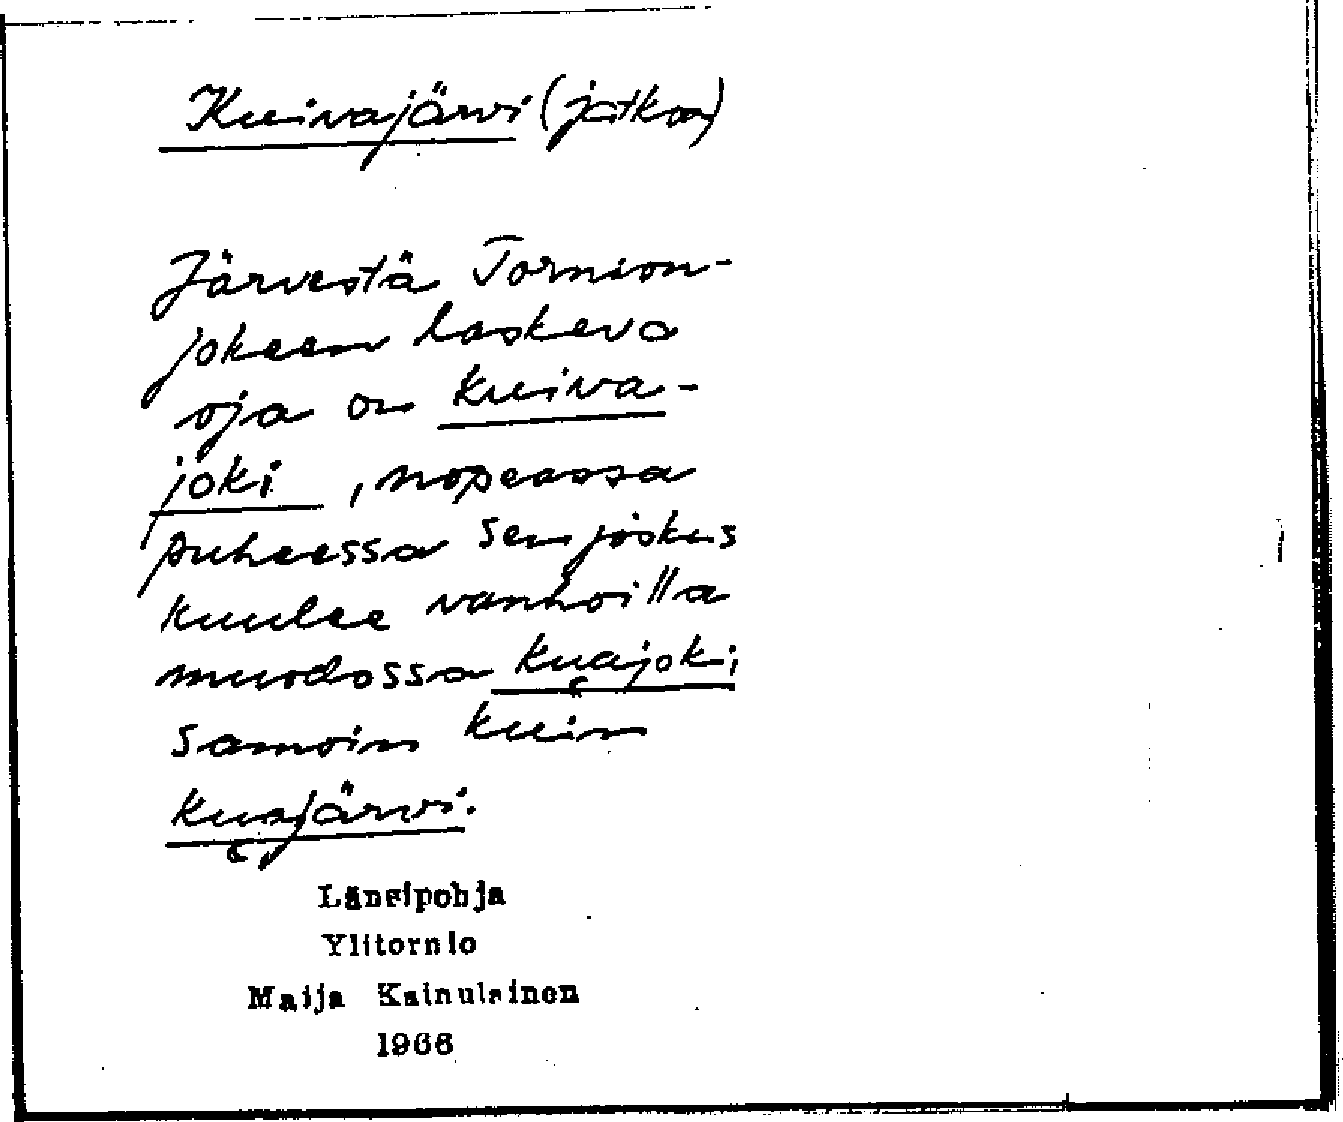 Kuivajärvi (jatkoa)
Järvestä Tornion-
jokeen laskeva
oja on Kuiva-
joki, nopeassa
puheessa sen joskus
kuulee vanhoilla
muodossa Ku̯ajoki
samoin kuin
Ku̯ajärvi.
Länsipohja
Ylitornio
Maija Kainulainen
1966